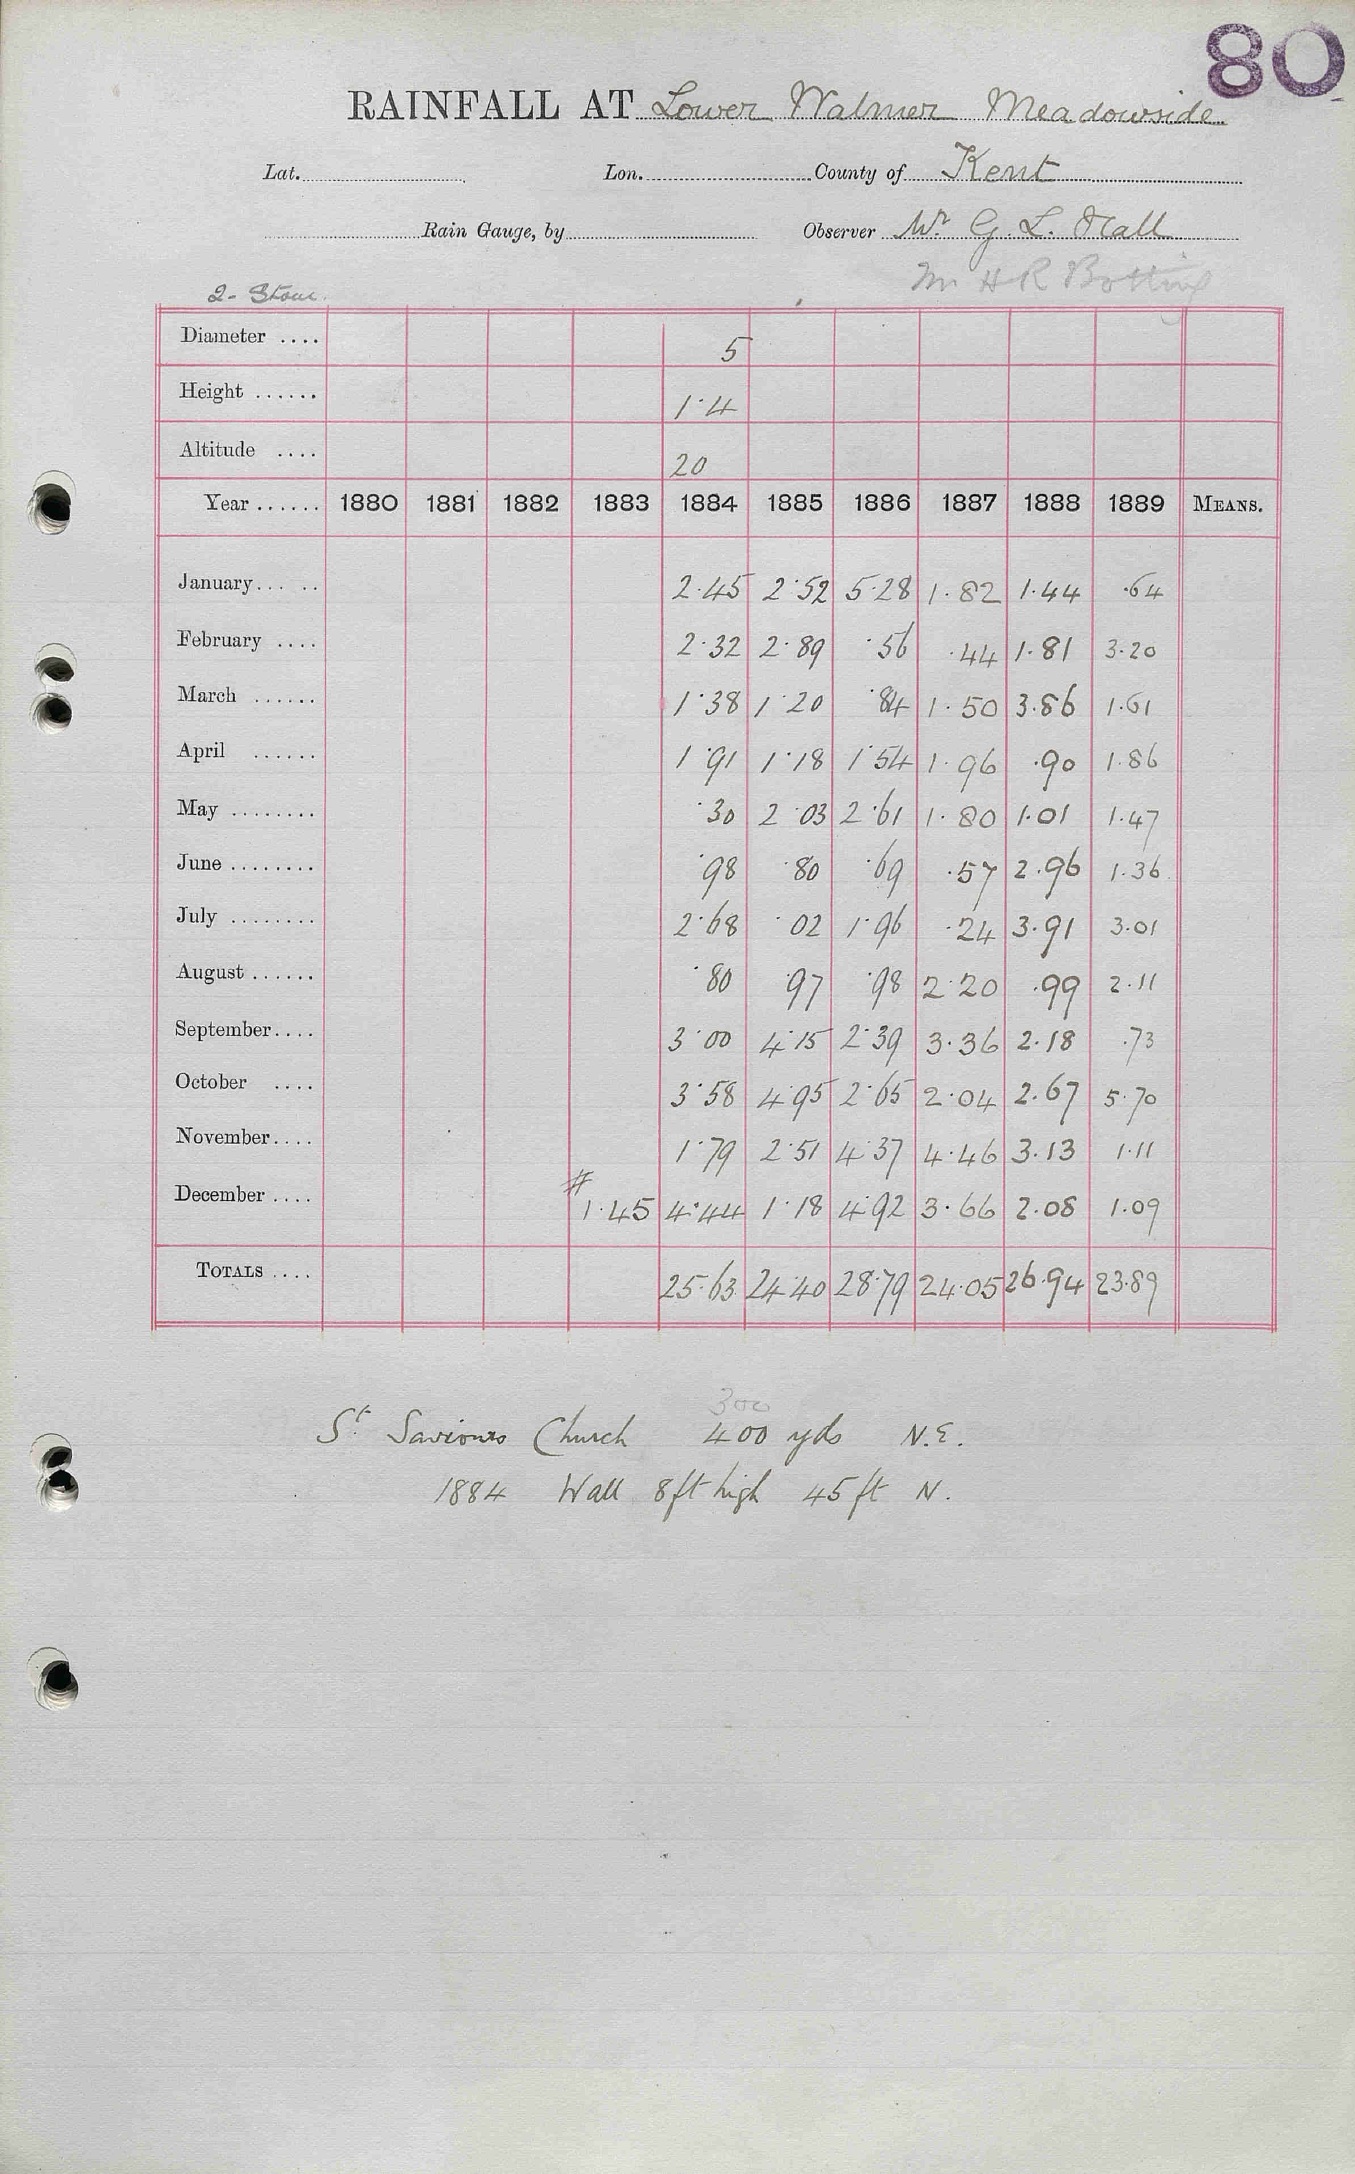 80
RAINFALL AT Lower Walmer Meadowside
Lat. Lon. County of Kent
Rain Gauge, by Observer Mr G. L. Hall
Mr H R Botting
2 - Stour.
Diameter .... 5
Height ...... 1.4
Altitude .... 20
Year ...... 1880 1881 1882 1883 1884 1885 1886 1887 1888 1889 MEANS.
January... .. 2.45 2.52 5.28 1.82 1.44 .64
February .... 2.32 2.89 .56 .44 1.81 3.20
March ...... 1.38 1.20 .84 1.50 3.86 1.61
April ...... 1.91 1.18 1.54 1.96 .90 1.86
May ........ .30 2.03 2.61 1.80 1.01 1.47
June ........ .98 .80 .69 .57 2.96 1.36
July ........ 2.68 .02 1.96 .24 3.91 3.01
August ...... .80 .97 .98 2.20 .99 2.11
September.... 3.00 4.15 2.39 3.36 2.18 .73
October .... 3.58 4.95 2.65 2.04 2.67 5.70
November.... 1.79 2.51 4.37 4.46 3.13 1.11
December .... # 1.45 4.44 1.18 4.92 3.66 2.08 1.09
TOTALS .... 25.63 24.40 28.79 24.05 26.94 23.89
300
St. Saviours Church 400 yds N.E.
1884 Wall 8ft high 45 ft N.